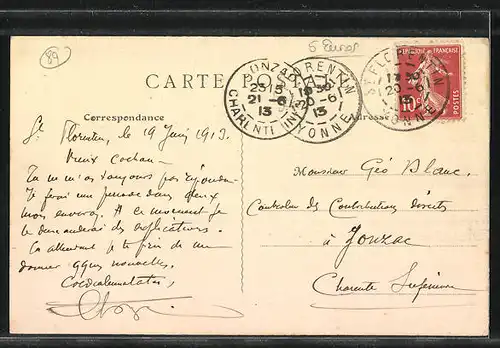 89
5 Euros
CARTE POSTALE
JONZAC
23 15
21 -6
13
CHARENTE INF
ST FLORENTIN
19 30
20 -6
13
YONNE
ST FLORENTIN
19 30
20 -6
13
YONNE
10
POSTES
Correspondance
Adresse
St Florentin, le 19 Juin 1913.
Vieux cochon
Tu ne m'as toujours pas répondu.
Je ferai une période dans deux
mois environ. A ce moment je
te demanderai des explications.
En attendant je te prie de me
donner qques nouvelles.
Cordialement à toi,
Monsieur Géo Blanc
Contrôleur des Contributions directes
à Jonzac
Charente Inférieure